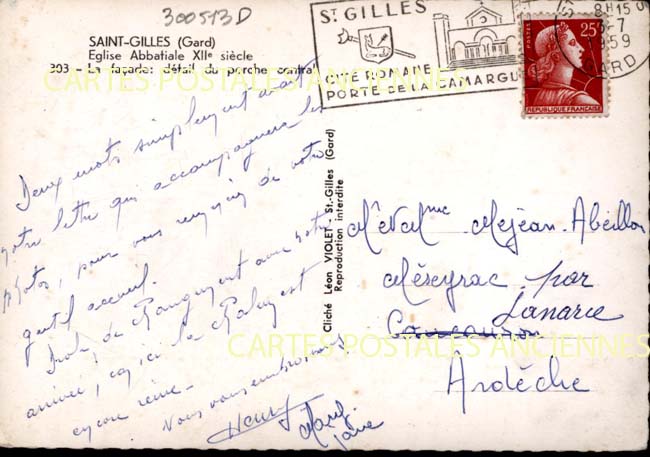 300513D
SAINT-GILLES (Gard)
Eglise Abbatiale XIIe siècle
303 - La façade: détail du porche central
CARTES POSTALES ANCIENNES
ST GILLES
CITÉ ROMAINE
PORTE DE LA CAMARGUE
8H15
-7
59
GARD
25F
REPUBLIQUE FRANÇAISE
Deux mots simplement avant
notre lettre qui accompagnera les
photos, pour vous remercier de votre
gentil accueil.
Drôle de changement avec notre
arrivée, car ici la chaleur est
encore reine.
Nous vous embrassons
Henry
Cliché Léon VIOLET, St.-Gilles (Gard)
Reproduction interdite
Mr et Mme Méjean-Abeillon
Mézeyrac par
Lanarce
Ardèche
CARTES POSTALES ANCIENNES